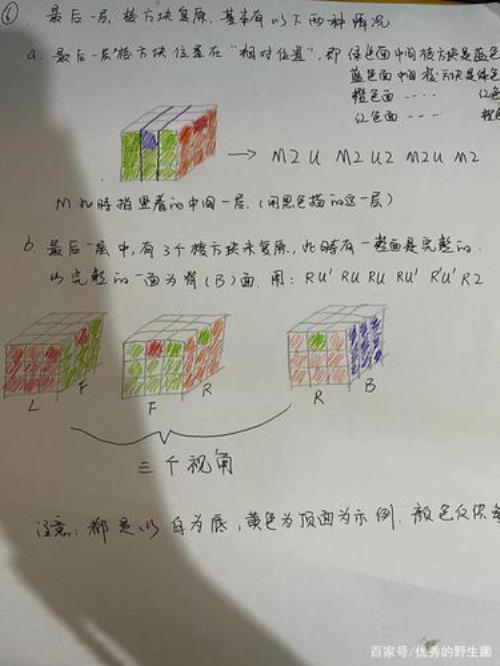 ⑥ 最后一层 棱方块复原. 基本有以下两种情况
a. 最后一层棱方块位置在"相对位置", 即 绿色面中间棱方块是蓝色
蓝色面中间棱方块是绿色
橙色面 ‥‥ 红色
红色面 ‥‥ 橙
→ M2 U M2 U2 M2 U M2
M 此时指竖着的中间一层. (用黑色描的这一层)
b. 最后一层中, 有3个棱方块未复原, 此时有一整面是完整的.
以完整的一面为背(B)面. 用: RU' RU RU RU' R'U' R2
L F F R R B
三个视角
注意: 都是以白为底, 黄色为顶面为示例. 颜色仅供参
百家号/优秀的野生菌